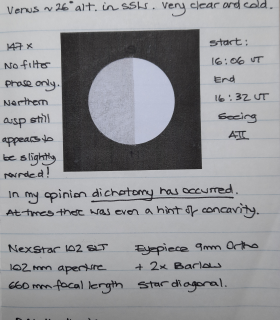 Venus ~ 26° alt. in SSW. Very clear and cold.
147 x
No filter
Phase only.
Northern
cusp still
appears to
be slightly
rounded!
Start:
16:06 UT
End
16:32 UT
Seeing
AII
In my opinion dichotomy has occurred.
At times there was even a hint of concavity.
NexStar 102 SLT Eyepiece 9mm Ortho
102mm aperture + 2x Barlow
660mm focal length Star diagonal.